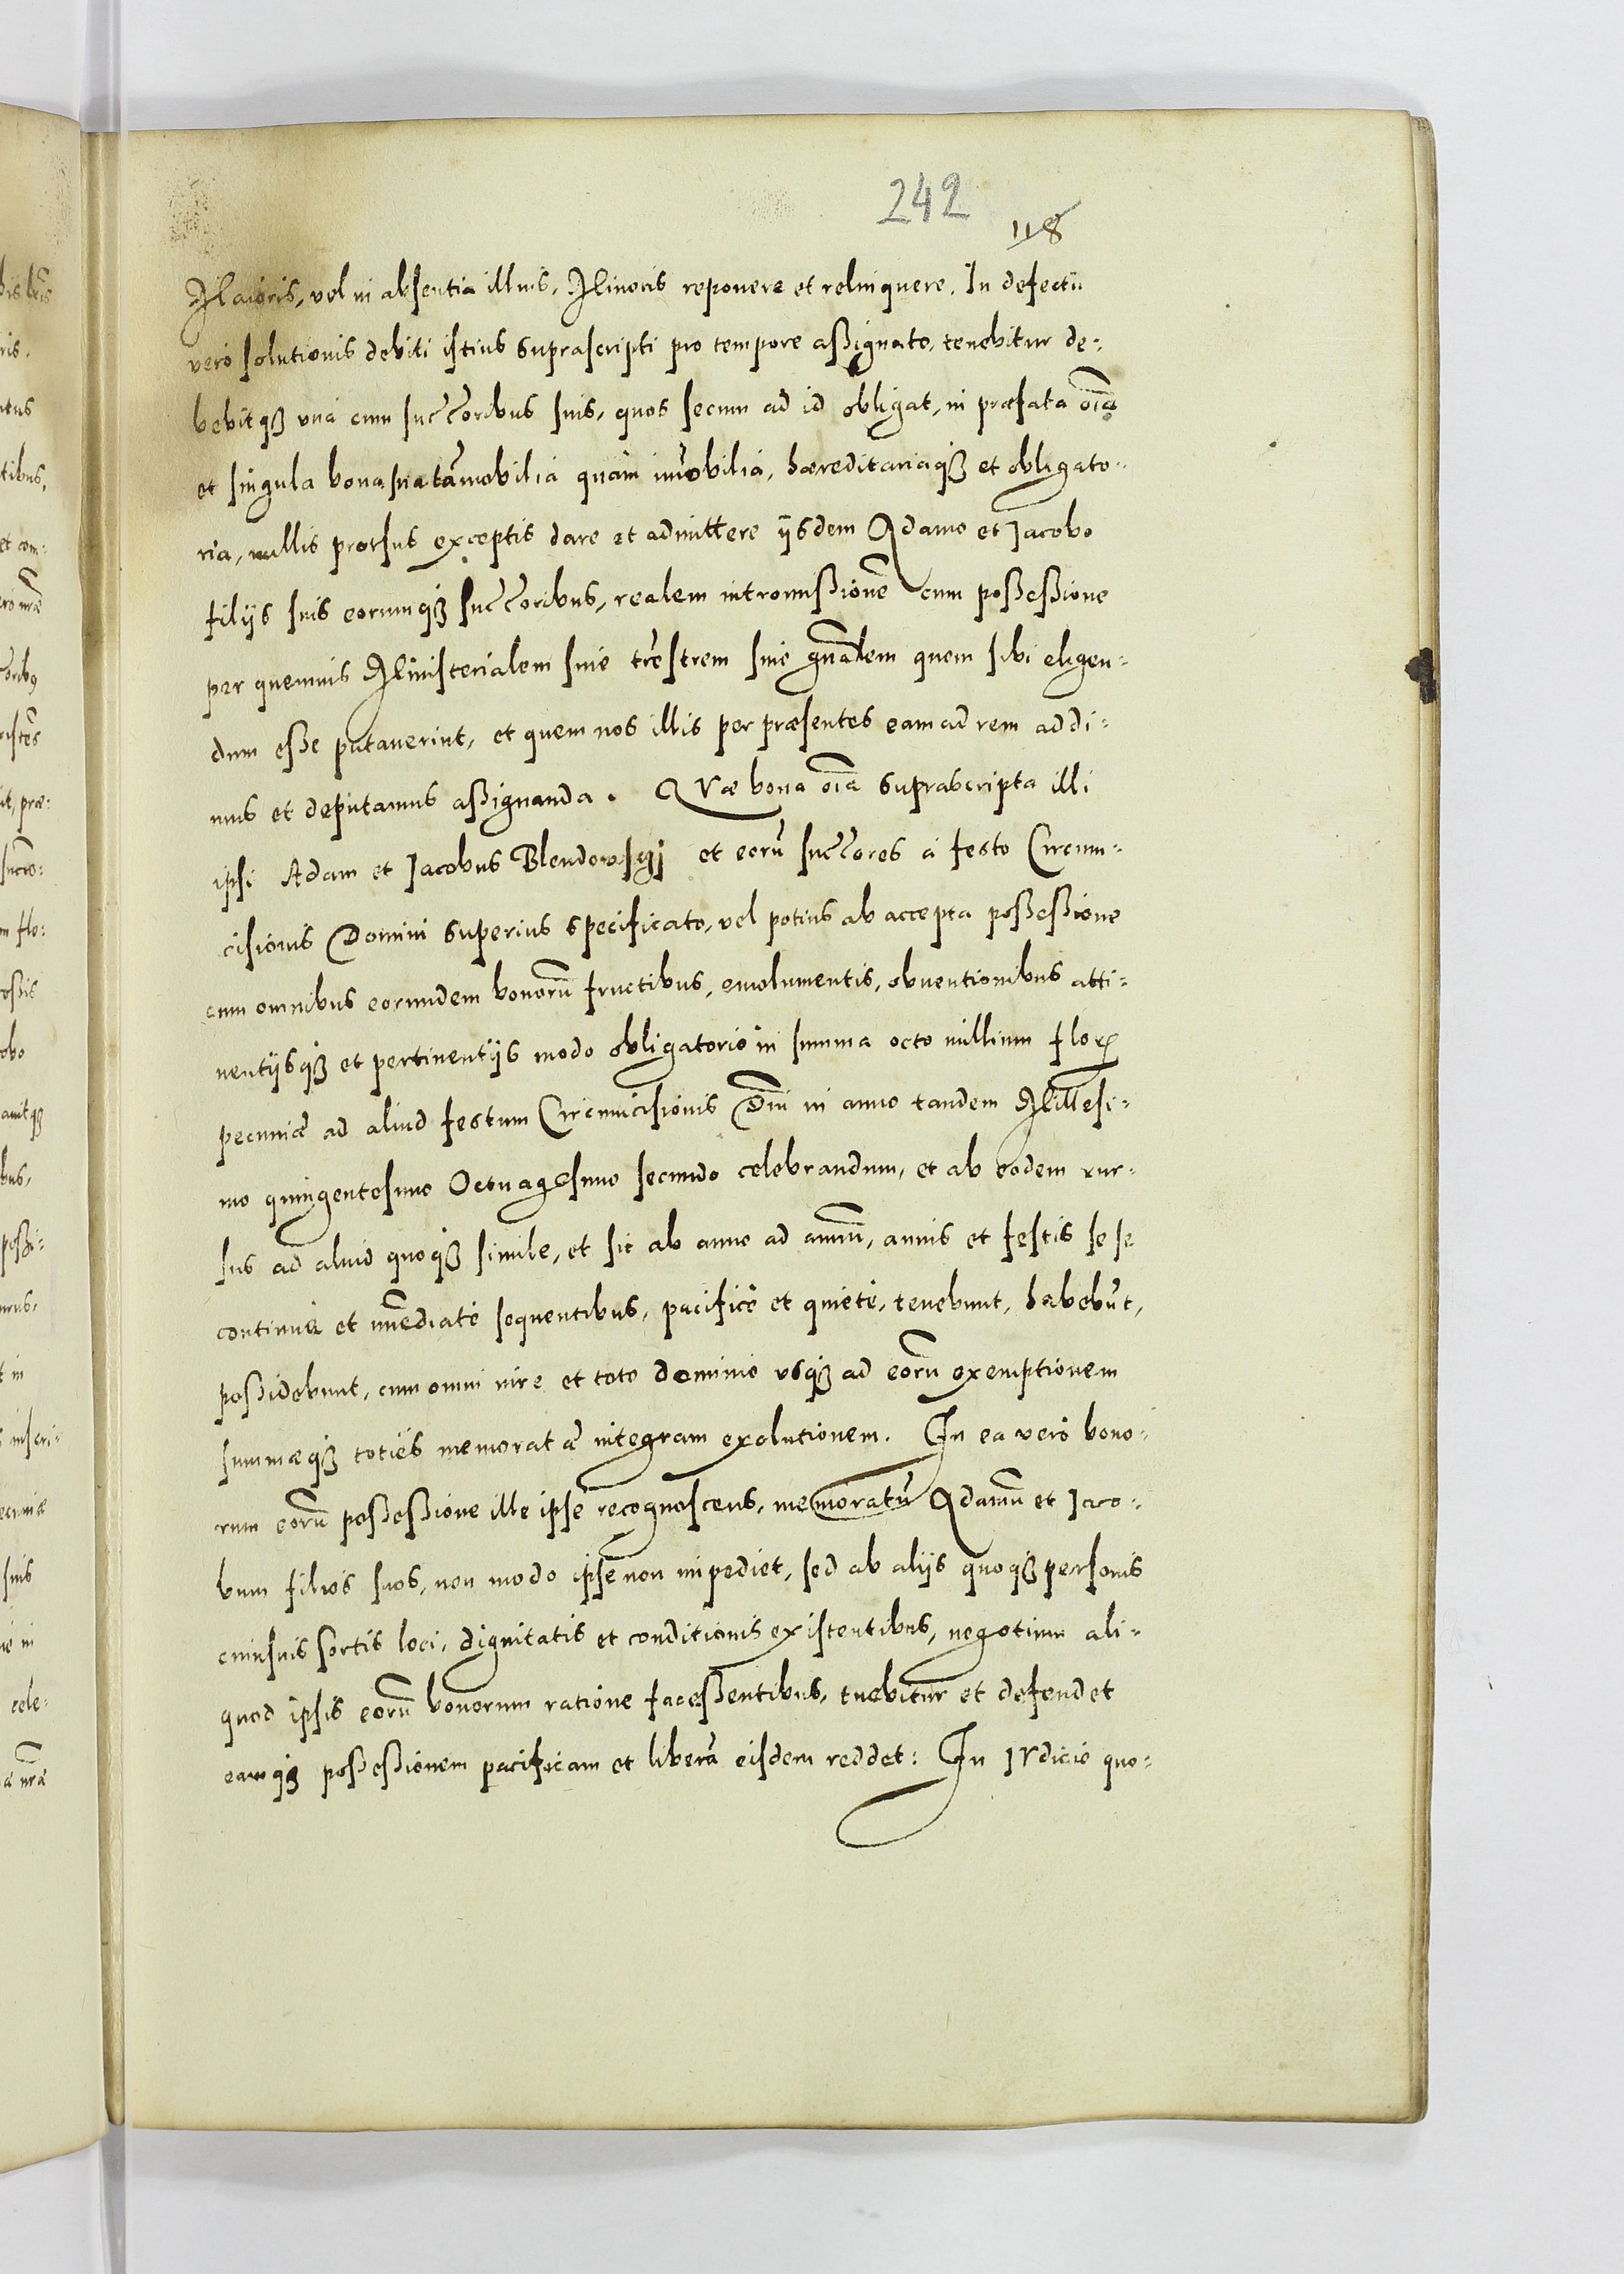 242
118
Maioris, vel in absentia illius, Minoris reponere et relinquere. In defectu
vero solutionis debiti istius suprascripti pro tempore assignato, tenebitur de¬
bebitqȝ vná cum succ̃oribus suis, quos secum ad id obligat, in præfata oĩa
et singula bona sua tã mobilia quàm im̃obilia, hæreditariaqȝ et obligato¬
ria, nullis prorsus exceptis dare et admittere ÿsdem Adamo et Jacobo
filijs suis eorumqȝ succ̃oribus, realem intromißionẽ cum poßeßione
per quemuis Ministerialem siue tr̃estrem siue gñalem quem sibi eligen¬
dum eße putauerint, et quem nos illis per præsentes eam ad rem addi¬
mus et deputamus aßignanda. QVæ bona oĩa suprascripta illi
ipsi Adam et Jacobus Blendowsgj et eorũ succ̃ores á festo Circum¬
cisionis Domini superius specificato, vel potius ab accepta poßeßione
cum omnibus eorundem bonorũ fructibus, emolumentis, obuentionibus atti¬
nentijsqȝ et pertinentijs modo obligatorio in summa octo millium flor
pecuniæ ad aliud festum Circumcisionis Dñi in anno tandem Millesi¬
mo quingentesimo Octuagesimo secundo celebrandum, et ab eodem rur¬
sus ad aliud quoqȝ simile, et sic ab anno ad annũ, annis et festis se se
continuè et im̃ediatè sequentibus, pacificè et quietè, tenebunt, habebũt,
poßidebunt, cum omni iure et toto dominio vsqȝ ad eorũ exemptionem
summæqȝ totiès memoratæ integram exolutionem. In ea verò bono¬
rum eorũ poßeßione ille ipse recognoscens, memoratũ Adamũ et Jaco¬
bum filios suos, non modo ipse non impediet, sed ab alijs quoqȝ personis
cuiusuis sortis loci, dignitatis et conditionis existentibus, negotium ali¬
quod ipsis eorũ bonorum ratione faceßentibus, tuebitur et defendet
eamqȝ poßeßionem pacificam et liberã eisdem reddet: In IVdicio quo¬